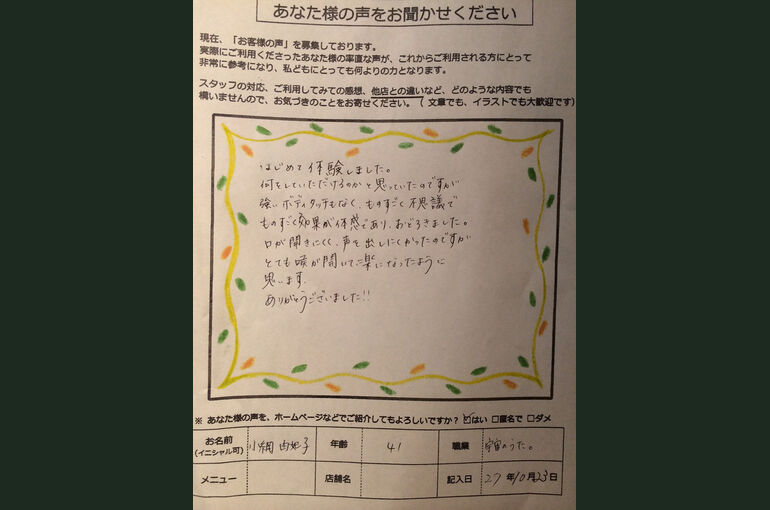 あなた様の声をお聞かせください
現在、「お客様の声」を募集しております。
実際にご利用くださったあなた様の率直な声が、これからご利用される方にとって
非常に参考になり、私どもにとっても何よりの力となります。
スタッフの対応、ご利用してみての感想、他店との違いなど、どのような内容でも
構いませんので、お気づきのことをお寄せください。（文章でも、イラストでも大歓迎です）
はじめて体験しました。
何をしていただけるのかと思っていたのですが
強いボディタッチもなく、ものすごく不思議で
ものすごく効果が体感であり、おどろきました。
口が開きにくく、声を出しにくかったのですが
とても喉が開いて楽になったように
思います。
ありがとうございました!!
※ あなた様の声を、ホームページなどでご紹介してもよろしいですか？ ☑はい □匿名で □ダメ
お名前 小網 由妃子 年齢 41 職業 宇宙のうた。
(イニシャル可)
メニュー 店舗名 記入日 27年10月23日